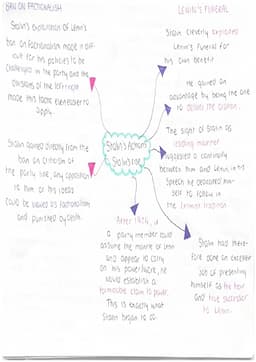 BAN ON FACTIONALISM
Stalin's exploitation of Lenin's
ban on factionalism made it diff-
icult for his policies to be
challenged in the party and the
divisions of the left+right
made this tactic even easier to
apply.
Stalin gained directly from the
ban on criticism of
the party line, any opposition
to him or his ideas
could be viewed as factionalism
and punished by death.
Stalin's Actions
LENIN'S FUNERAL
Stalin cleverly exploited
Lenin's funeral for
his own benefit
He gained an
advantage by being the one
to deliver the oration.
The sight of Stalin as
leading mourner
suggested a continuity
between him and Lenin, in his
speech he dedicated him-
self to follow in
the Leninist tradition
Stalin had there-
fore done an excellent
job of presenting
himself as the heir
and true successor
to Lenin.
After 1924, if
a party member could
assume the mantle of Lenin
and appear to carry
on his power/work, he
would establish a
formidable claim to power.
This is exactly what
Stalin began to do.